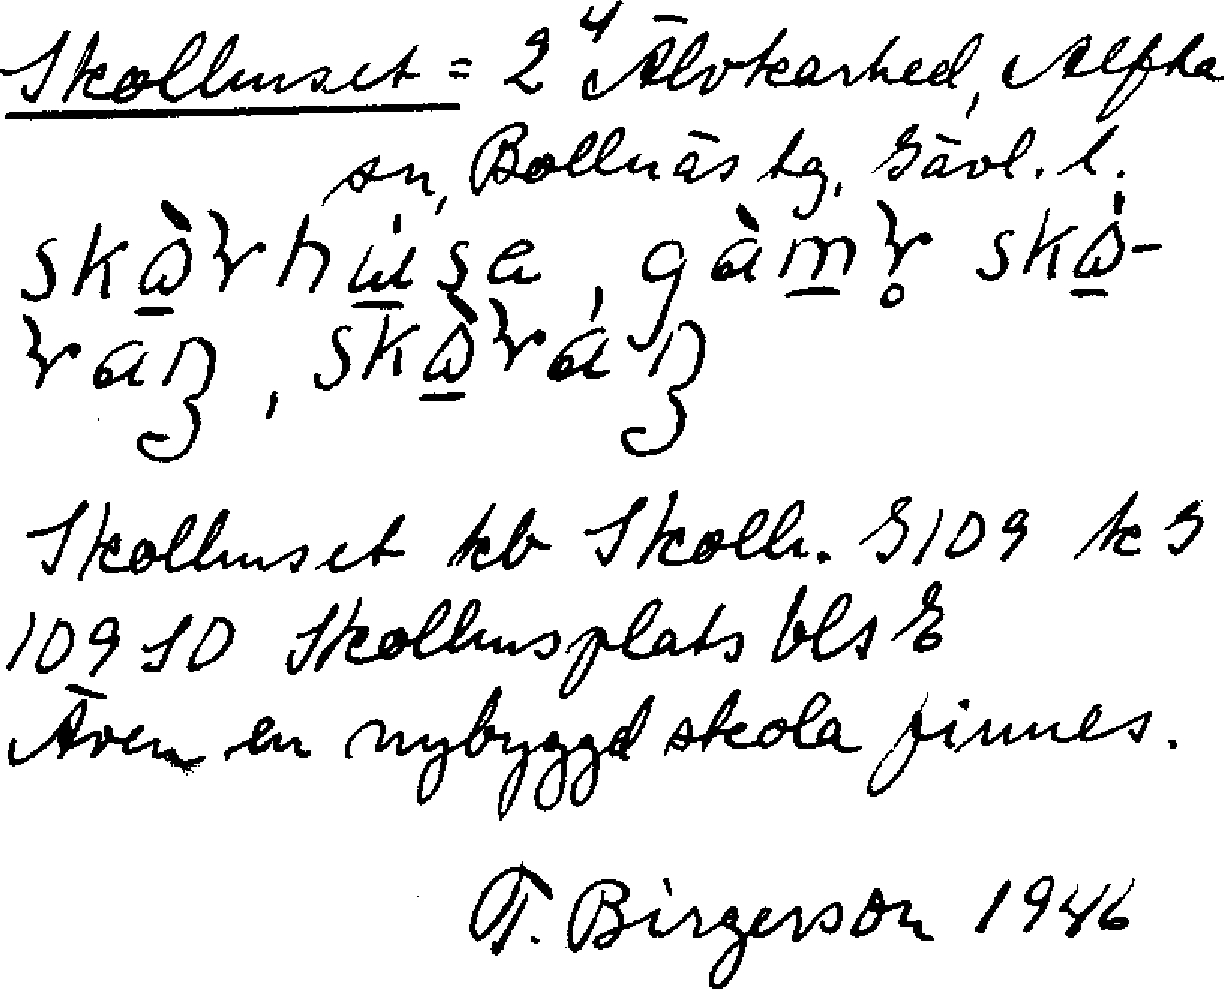 Skolhuset = 2⁴ Älvkarhed, Alfta
sn, Bollnäs tg, Gävl. l.
Skolhuset kb Skolh. G109 k G
109 SO Skolhusplats bls E
Även en nybyggd skola finnes.
T. Birgerson 1946